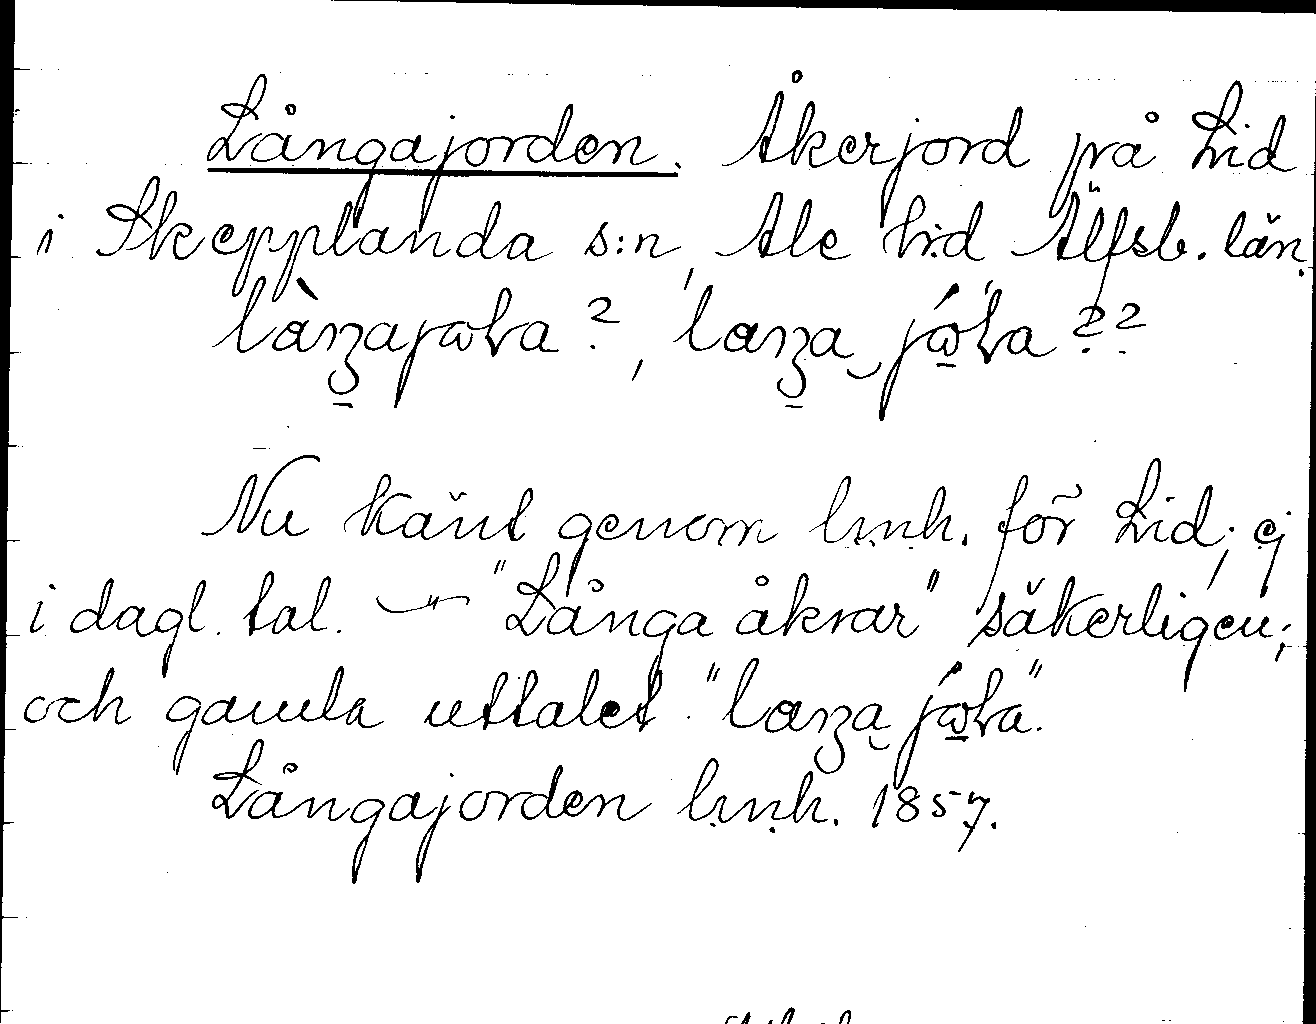 Långajorden. Åkerjord på Lid
i Skepplanda s:n, Ale h:d Älfsb. län.
Nu känt genom h.m.h. för Lid; ej
i dagl. tal. — "Långa åkrar" säkerligen;
och gamla uttalet
Långajorden h.m.h. 1857.